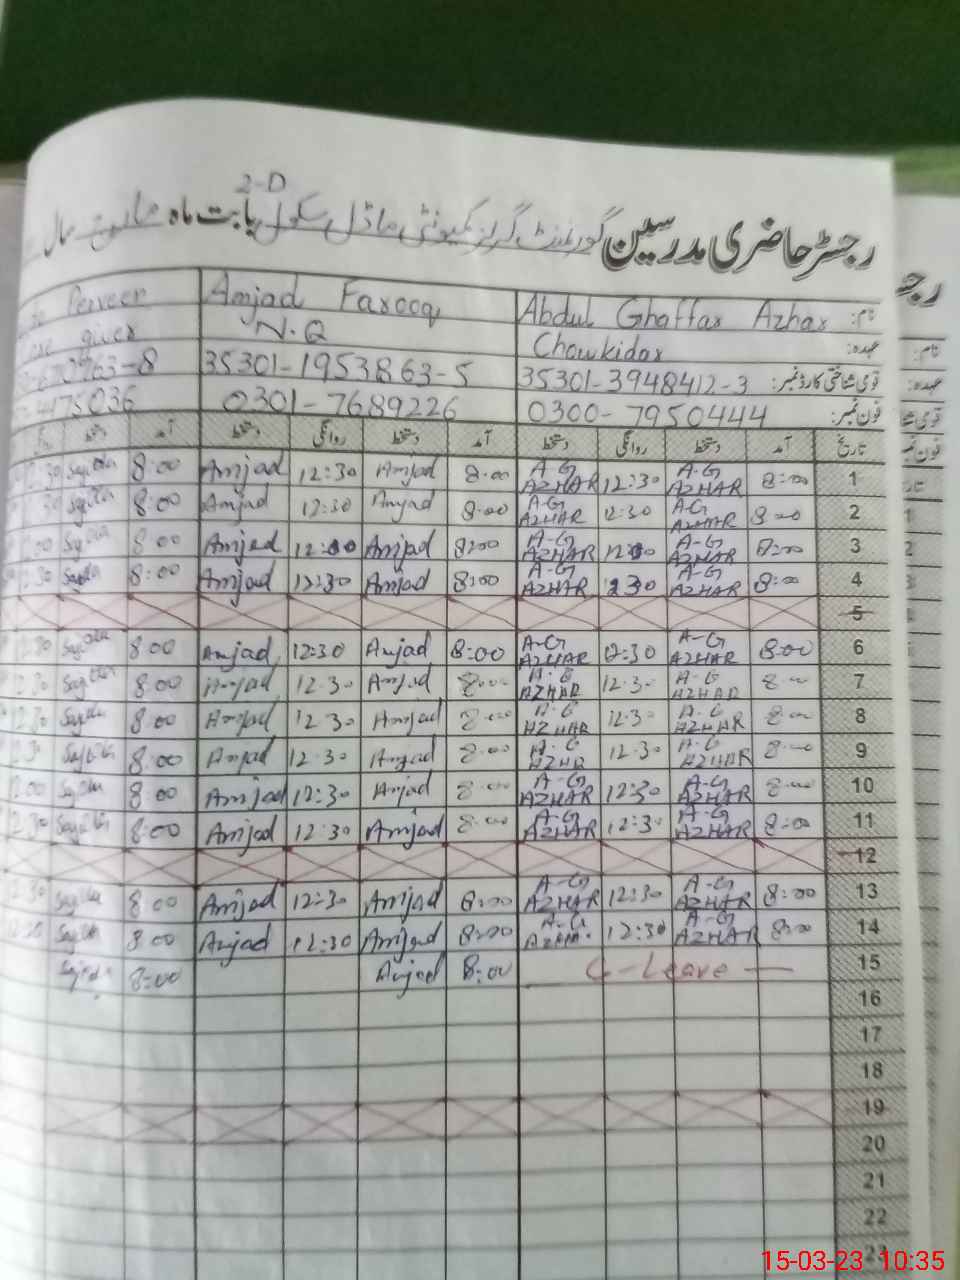 2-D
رجسٹر حاضری مدرسین گورنمنٹ گرلز کمیونٹی ماڈل سکول بابت ماہ مارچ سال
نام: Abdul Ghaffar Azhar Amjad Farooq Perveen
عہدہ: Chowkidar N.Q giver
قومی شناختی کارڈ نمبر: 35301-3948412-3 35301-1953863-5
فون نمبر: 0300-7950444 0301-7689226 4475036
تاریخ آمد دستخط روانگی دستخط آمد دستخط روانگی دستخط آمد دستخط
1 8:00 A-G AZHAR 12:30 A-G AZHAR 8:00 Amjad 12:30 Amjad 8:00
2 8:00 A-G AZHAR 12:30 A-G AZHAR 8:00 Amjad 12:30 Amjad 8:00
3 8:00 A-G AZHAR 12:00 A-G AZHAR 8:00 Amjad 12:00 Amjad 8:00
4 8:00 A-G AZHAR 12:30 A-G AZHAR 8:00 Amjad 12:30 Amjad 8:00
5
6 8:00 A-G AZHAR 12:30 A-G AZHAR 8:00 Amjad 12:30 Amjad 8:00
7 8:00 A-G AZHAR 12:30 A-G AZHAR 8:00 Amjad 12:30 Amjad 8:00
8 8:00 A-G AZHAR 12:30 A-G AZHAR 8:00 Amjad 12:30 Amjad 8:00
9 8:00 A-G AZHAR 12:30 A-G AZHR 8:00 Amjad 12:30 Amjad 8:00
10 8:00 A-G AZHAR 12:30 A-G AZHAR 8:00 Amjad 12:30 Amjad 8:00
11 8:00 A-G AZHAR 12:30 A-G AZHAR 8:00 Amjad 12:30 Amjad 8:00
12
13 8:00 A-G AZHAR 12:30 A-G AZHAR 8:00 Amjad 12:30 Amjad 8:00
14 8:00 A-G AZHAR 12:30 A-G AZHA. 8:00 Amjad 12:30 Amjad 8:00
15 C-Leave 8:00 Amjad 8:00
16
17
18
19
20
21
22
23
15-03-23 10:35